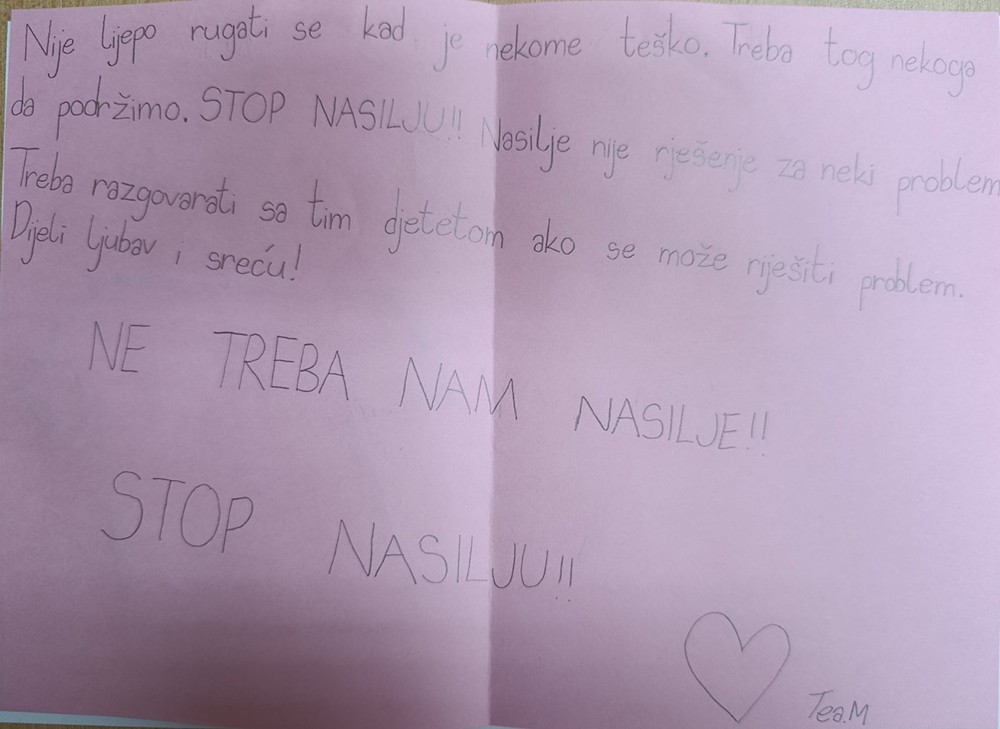 Nije lijepo rugati se kad je nekome teško. Treba tog nekoga
da podržimo. STOP NASILJU!! Nasilje nije rješenje za neki problem
Treba razgovarati sa tim djetetom ako se može riješiti problem.
Dijeli ljubav i sreću!
NE TREBA NAM NASILJE!!
STOP NASILJU!!
Tea.M